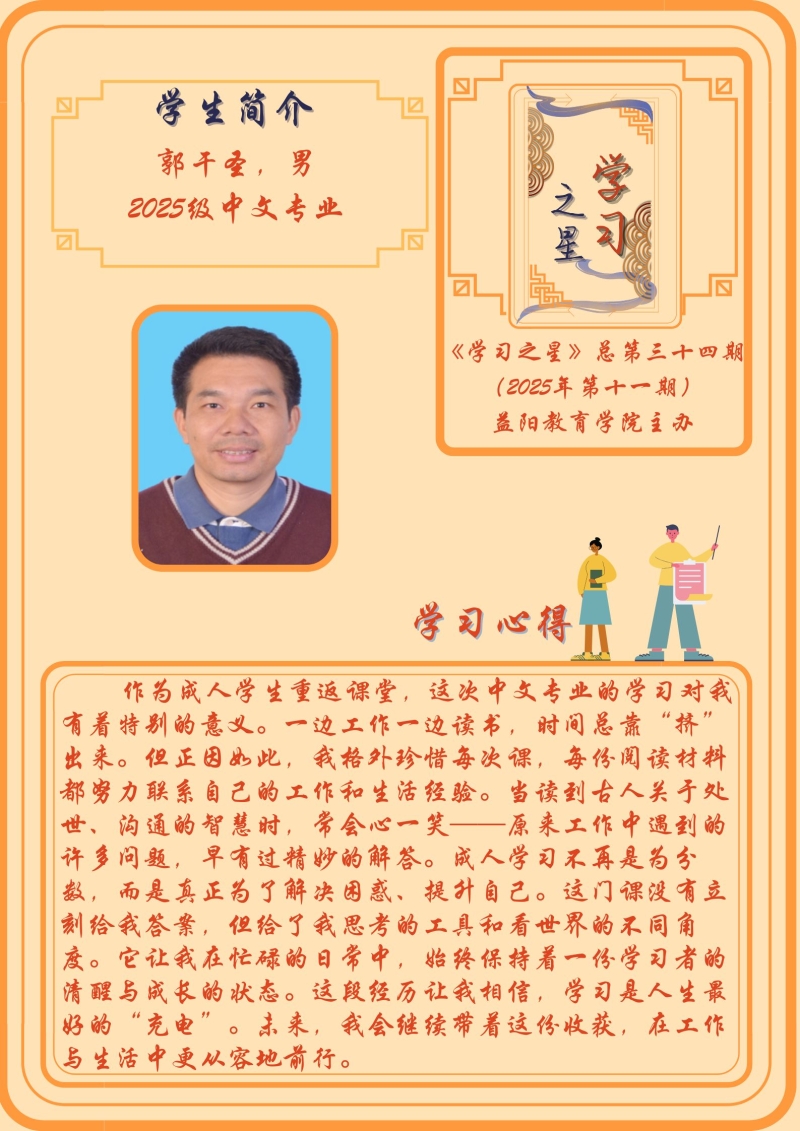 学生简介
郭干圣，男
2025级中文专业
学习
之星
《学习之星》总第三十四期
（2025年第十一期）
益阳教育学院主办
学习心得
作为成人学生重返课堂，这次中文专业的学习对我
有着特别的意义。一边工作一边读书，时间总靠“挤”
出来。但正因如此，我格外珍惜每次课，每份阅读材料
都努力联系自己的工作和生活经验。当读到古人关于处
世、沟通的智慧时，常会心一笑——原来工作中遇到的
许多问题，早有过精妙的解答。成人学习不再是为分
数，而是真正为了解决困惑、提升自己。这门课没有立
刻给我答案，但给了我思考的工具和看世界的不同角
度。它让我在忙碌的日常中，始终保持着一份学习者的
清醒与成长的状态。这段经历让我相信，学习是人生最
好的“充电”。未来，我会继续带着这份收获，在工作
与生活中更从容地前行。